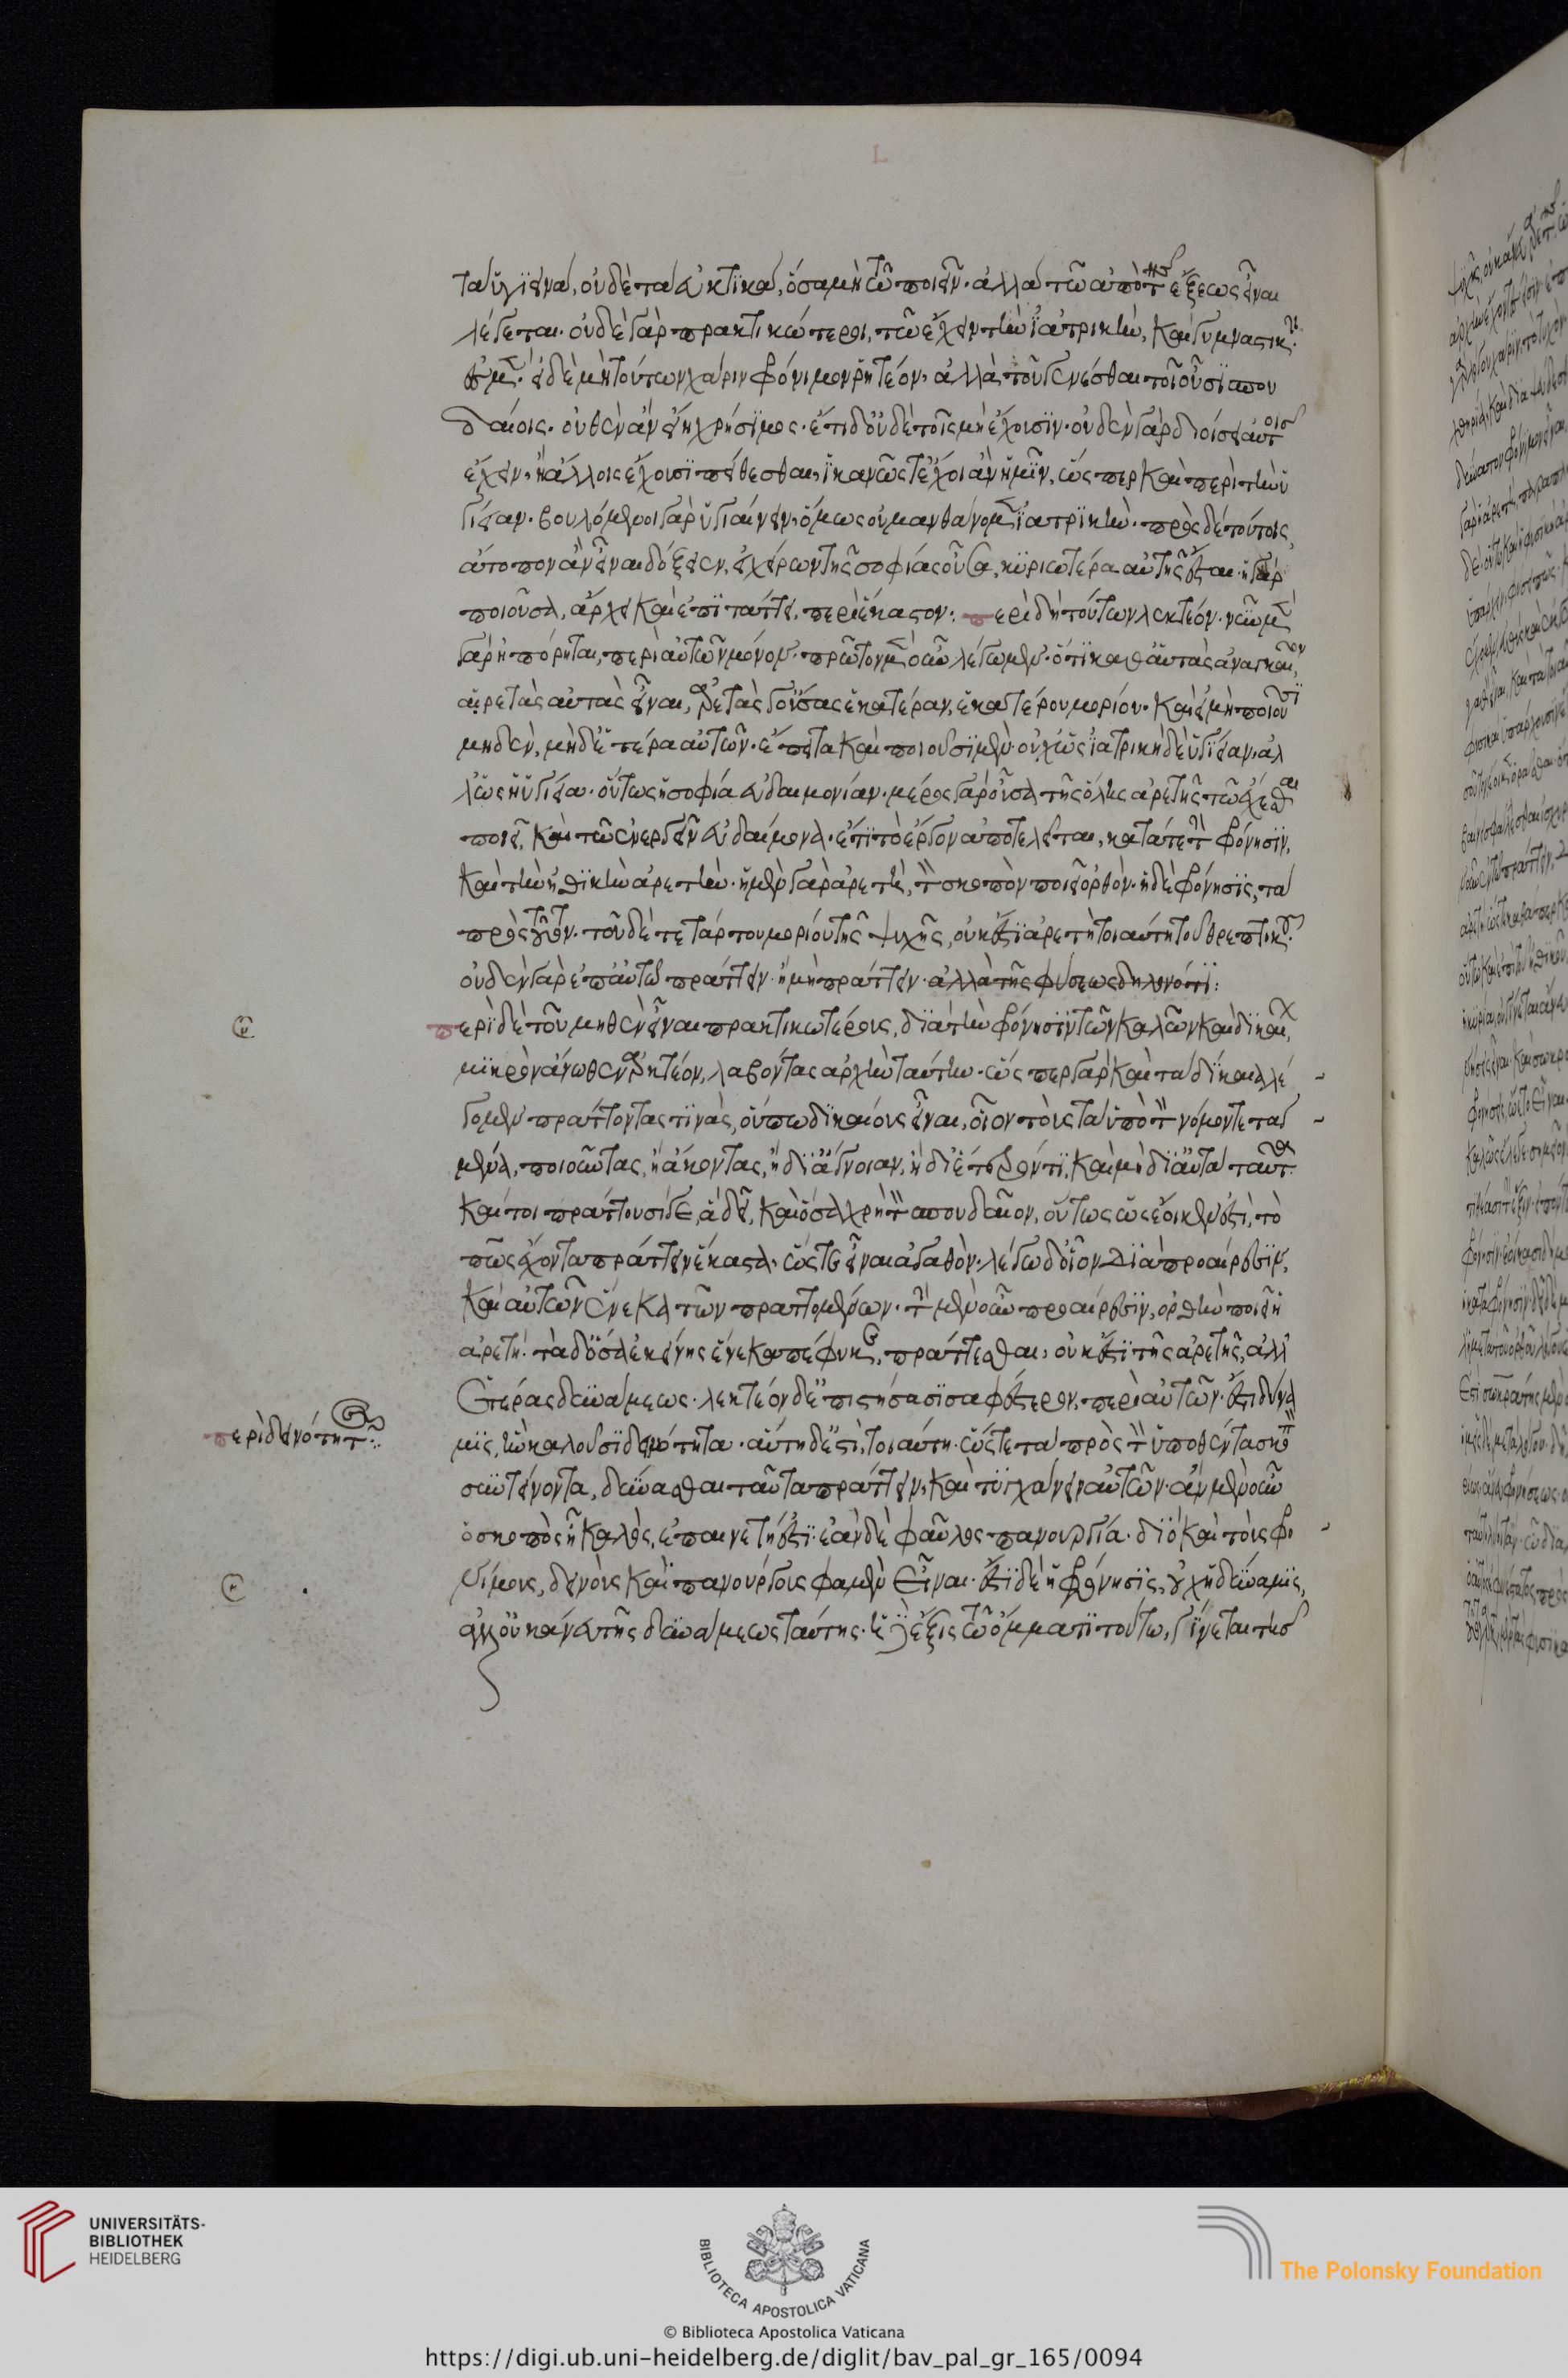 L
τὰ ὑγιεινὰ, οὐδὲ τὰ εὐεκτικὰ, ὅσα μὴ τῶ ποιεῖν ἀλλὰ τῶ ἀπὸ τῆς ἕξεως εἶναι
λέγεται· οὐδὲ γὰρ πρακτικώτεροι, τῶ ἔχειν τὴν ἰατρικὴν, καὶ γυμναστικὴν
ἐσμέν· εἰ δὲ μὴ τούτων χάριν φρόνιμον ῥητέον, ἀλλὰ τοῦ γενέσθαι, τοῖς οὖσι σπου
δαίοις· οὐθὲν ἂν εἴη χρήσιμος· ἔτι δ' οὐδὲ τοῖς μὴ ἔχουσιν· οὐδὲν γὰρ διοίσει αὐτοῖς
ἔχειν, ἢ ἄλλοις ἔχουσι πείθεσθαι, ἱκανῶς τ' ἔχοι ἂν ἡμῖν, ὥσπερ καὶ περὶ τὴν ὑ
γίειαν· βουλόμενοι γὰρ ὑγιαίνειν, ὅμως οὐ μανθάνομεν ἰατρικήν· πρὸς δὲ τούτοις,
ἄτοπον ἂν εἶναι δόξειεν, εἰ χείρων τῆς σοφίας οὖσα, κυριωτέρα αὐτῆς ἔσται· ἡ γὰρ
ποιοῦσα, ἄρχει καὶ ἐπιτάττει, περὶ ἕκαστον: περὶ δὴ τούτων λεκτέον· νῦν μὲν
γὰρ ἠπόρηται, περὶ αὐτῶν μόνον· πρῶτον μὲν οὖν λέγωμεν· ὅτι καθ' αὑτὰς ἀναγκαῖον,
αἱρετὰς αὐτὰς εἶναι, ἀρετάς γ' οὔσας ἑκατέραν, ἑκατέρου μορίου· καὶ εἰ μὴ ποιοῦσι
μηδὲν, μηδετέρα αὐτῶν· ἔπειτα καὶ ποιοῦσι μὲν· οὐχ ὡς ἰατρικὴ δὲ ὑγίειαν, ἀλ
λ' ὡς ἡ ὑγίεια· οὕτως ἡ σοφία εὐδαιμονίαν· μέρος γὰρ οὖσα τῆς ὅλης ἀρετῆς τῶ ἔχεσθαι
ποιεῖ, καὶ τῶ ἐνεργεῖν εὐδαίμονα· ἔτι τὸ ἔργον ἀποτελεῖται, κατά τε τὴν φρόνησιν,
καὶ τὴν ἠθικὴν ἀρετήν· ἡ μὲν γὰρ ἀρετὴ, τὸν σκοπὸν ποιεῖ ὀρθόν· ἡ δὲ φρόνησις, τὰ
πρὸς τοῦτον· τοῦ δὲ τετάρτου μορίου τῆς ψυχῆς, οὐκ ἔστι ἀρετὴ τοιαύτη τοῦ θρεπτικοῦ·
οὐδὲν γὰρ ἐπ' αὐτῶ πράττειν ἢ μὴ πράττειν· ἀλλὰ τῆς φύσεως δηλονότι:
περὶ δὲ τοῦ μηθὲν εἶναι πρακτικωτέρους, διὰ τὴν φρόνησιν τῶν καλῶν καὶ δικαίων,
μικρὸν ἄνωθεν ἀρκτέον, λαβόντας ἀρχὴν ταύτην· ὥσπερ γὰρ καὶ τὰ δίκαια λέ
γομεν πράττοντας τινὰς, οὔπω δικαίους εἶναι, οἷον τοὺς τὰ ὑπὸ τῶν νόμων τεταγ
μένα, ποιοῦντας, ἢ ἄκοντας, ἢ δι' ἄγνοιαν, ἢ δι' ἕτερόν τι, καὶ μὴ δι' αὐτὰ ταῦτα·
καίτοι πράττουσί γε, ἃ δεῖ, καὶ ὅσα χρὴ τὸν σπουδαῖον, οὕτως ὡς ἔοικεν ἔστι, τὸ
πῶς ἔχοντα πράττειν ἕκαστα, ὥστε εἶναι ἀγαθόν· λέγω δ' οἷον διὰ προαίρεσιν,
καὶ αὐτῶν ἕνεκα τῶν πραττομένων· τὴν μὲν οὖν προαίρεσιν, ὀρθὴν ποιεῖ ἡ
ἀρετή· τὰ δ' ὅσα ἐκείνης ἕνεκα πέφυκε, πράττεσθαι, οὐκ ἔστι τῆς ἀρετῆς, ἀλλ'
ἑτέρας δυνάμεως· λεκτέον δ' ἐπιστήσασι σαφέστερον, περὶ αὐτῶν· ἔστι δύνα
περὶ δεινότητος:
μις, ἣν καλοῦσι δεινότητα· αὕτη δ' ἐστὶ, τοιαύτη· ὥστε τὰ πρὸς τὸν ὑποτεθέντα σκοπὸν
συντείνοντα, δύνασθαι ταῦτα πράττειν, καὶ τυγχάνειν αὐτῶν· ἂν μὲν οὖν
ὁ σκοπὸς ἦ καλὸς, ἐπαινετή ἐστι· ἐὰν δὲ φαῦλος πανουργία· διὸ καὶ τοὺς φρο
νίμους, δεινοὺς καὶ πανούργους φαμὲν εἶναι· ἔστι δὲ ἡ φρόνησις, οὐχ ἡ δύναμις,
ἀλλ' οὐκ ἄνευ τῆς δυνάμεως ταύτης· ἡ δ' ἕξις τῶ ὄμματι τούτω, γίνεται τῆς
UNIVERSITÄTS-
BIBLIOTHEK
HEIDELBERG
BIBLIOTECA APOSTOLICA VATICANA
The Polonsky Foundation
© Biblioteca Apostolica Vaticana
https://digi.ub.uni-heidelberg.de/diglit/bav_pal_gr_165/0094